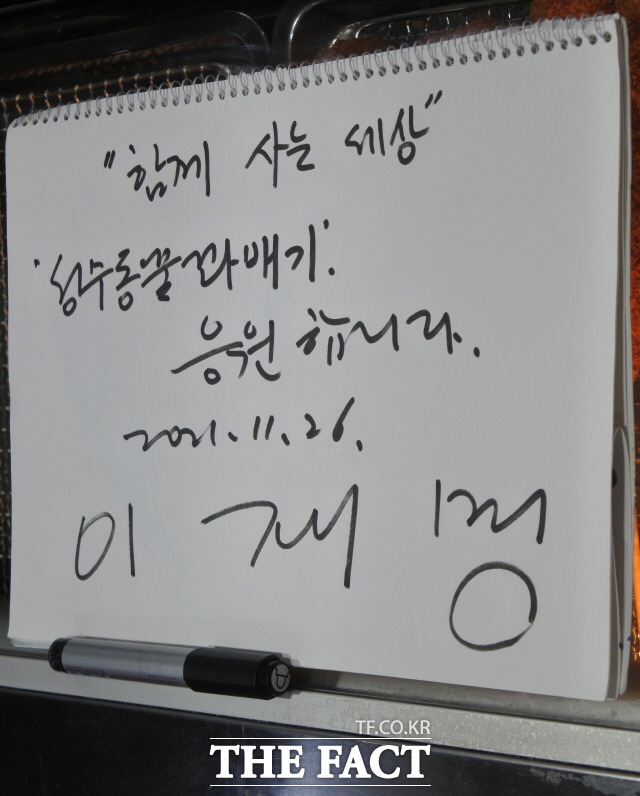 "함께 사는 세상"
'성수동꿀꽈배기'.
응원합니다.
2021.11.26.
이재명
TF.CO.KR
THE FACT